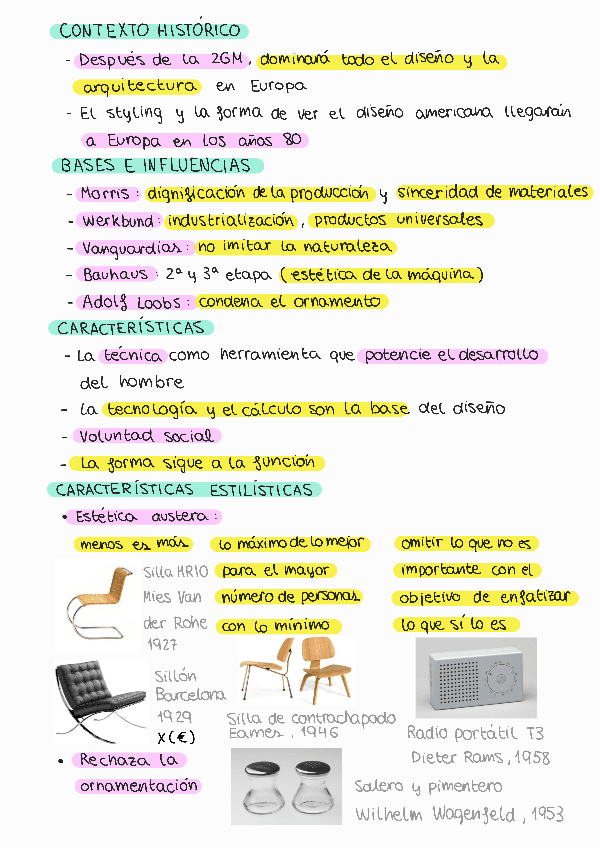 CONTEXTO HISTÓRICO
- Después de la 2GM, dominará todo el diseño y la
arquitectura en Europa
- El styling y la forma de ver el diseño americana llegarán
a Europa en los años 80
BASES E INFLUENCIAS
- Morris: dignificación de la producción y sinceridad de materiales
- Werkbund: industrialización, productos universales
- Vanguardias: no imitar la naturaleza
- Bauhaus: 2ª y 3ª etapa (estética de la máquina)
- Adolf Loobs: condena el ornamento
CARACTERÍSTICAS
- La técnica como herramienta que potencie el desarrollo
del hombre
- La tecnología y el cálculo son la base del diseño
- Voluntad social
- La forma sigue a la función
CARACTERÍSTICAS ESTILÍSTICAS
• Estética austera:
menos es más
Silla MR10
Mies Van
der Rohe
1927
Sillón
Barcelona
1929
X(€)
lo máximo de lo mejor
para el mayor
número de personas
con lo mínimo
Silla de contrachapado
Eames, 1946
omitir lo que no es
importante con el
objetivo de enfatizar
lo que sí lo es
Radio portátil T3
Dieter Rams, 1958
• Rechaza la
ornamentación
Salero y pimentero
Wilhelm Wagenfeld, 1953